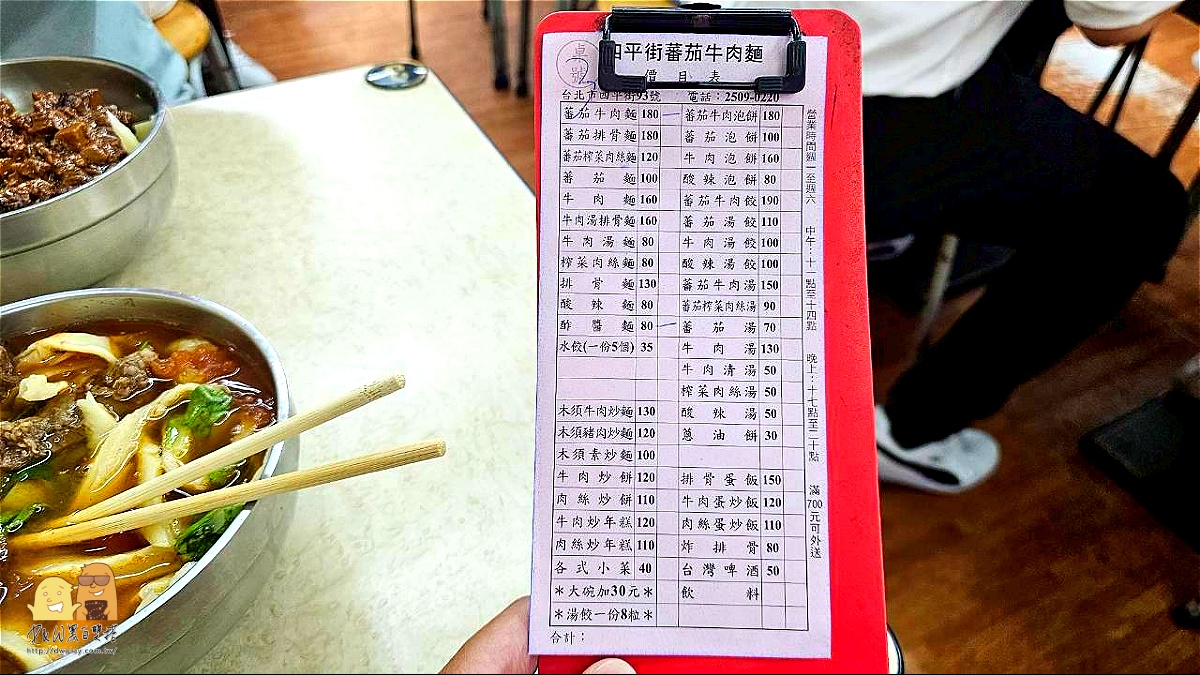 卓號
四平街蕃茄牛肉麵
價目表
台北市四平街93號 電話：2509-0220
蕃茄牛肉麵 180 蕃茄牛肉泡餅 180
蕃茄排骨麵 180 蕃茄泡餅 100
蕃茄榨菜肉絲麵 120 牛肉泡餅 160
蕃茄麵 100 酸辣泡餅 80
牛肉麵 160 蕃茄牛肉餃 190
牛肉湯排骨麵 160 蕃茄湯餃 110
牛肉湯麵 80 牛肉湯餃 100
榨菜肉絲麵 80 酸辣湯餃 100
排骨麵 130 蕃茄牛肉湯 150
酸辣麵 80 蕃茄榨菜肉絲湯 90
酢醬麵 80 蕃茄湯 70
水餃(一份5個) 35 牛肉湯 130
牛肉清湯 50
榨菜肉絲湯 50
木須牛肉炒麵 130 酸辣湯 50
木須豬肉炒麵 120 蔥油餅 30
木須素炒麵 100
牛肉炒餅 120 排骨蛋飯 150
肉絲炒餅 110 牛肉蛋炒飯 120
牛肉炒年糕 120 肉絲蛋炒飯 110
肉絲炒年糕 110 炸排骨 80
各式小菜 40 台灣啤酒 50
＊大碗加30元＊ 飲料
＊湯餃一份8粒＊
合計：
營業時間週一至週六 中午：十一點至十四點 晚上：十七點至二十點 滿700元可外送
http://dwplay.com.tw/